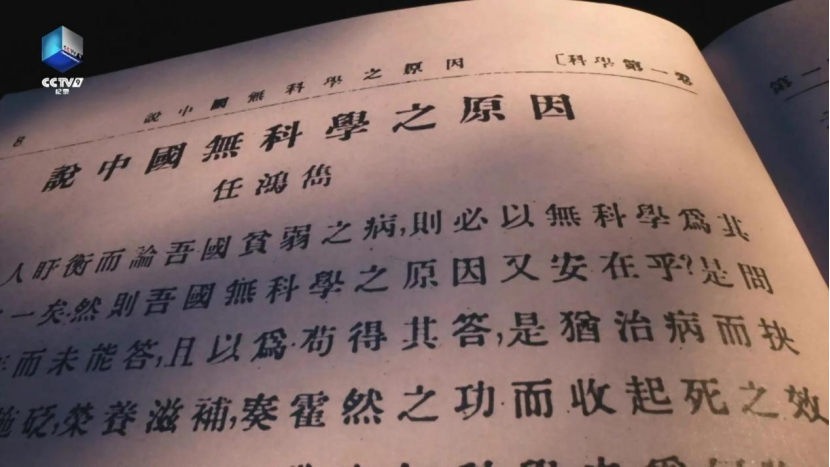 CCTV9
纪录
8
說中國無科學之原因
〔科學第一卷
第二
說中國無科學之原因
任鴻雋
人盱衡而論吾國貧弱之病,則必以無科學爲其
一矣.然則吾國無科學之原因又安在乎?是問
而未能答,且以爲苟得其答,是猶治病而抉
施砭,榮養滋補,奏霍然之功而收起死之效